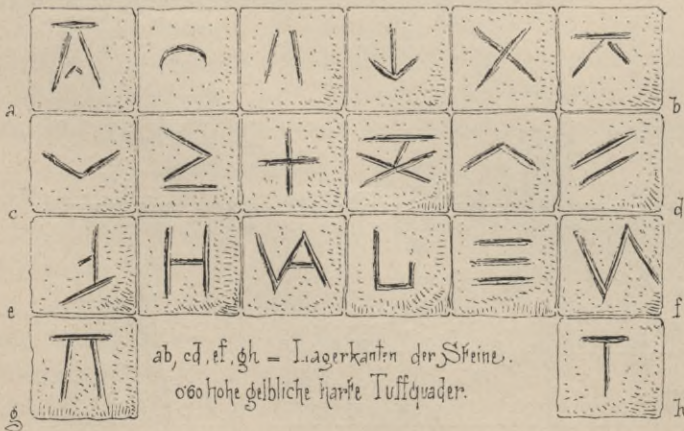 a
b
c
d
e
f
g
h
ab, cd, ef, gh = Lagerkanten der Steine.
0·60 hohe gelbliche harte Tuffquader.